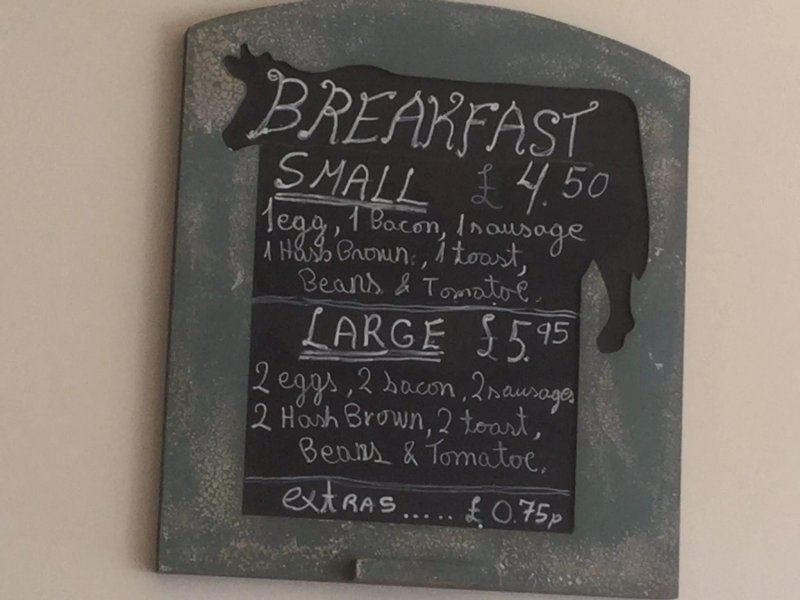 BREAKFAST
SMALL £ 4.50
1egg, 1 Bacon, 1 sausage
1 Hash Brown, 1 toast,
Beans & Tomatoe.
LARGE £5.95
2 eggs, 2 bacon, 2 sausages
2 Hash Brown, 2 toast,
Beans & Tomatoe.
extRAS..... £ 0.75p